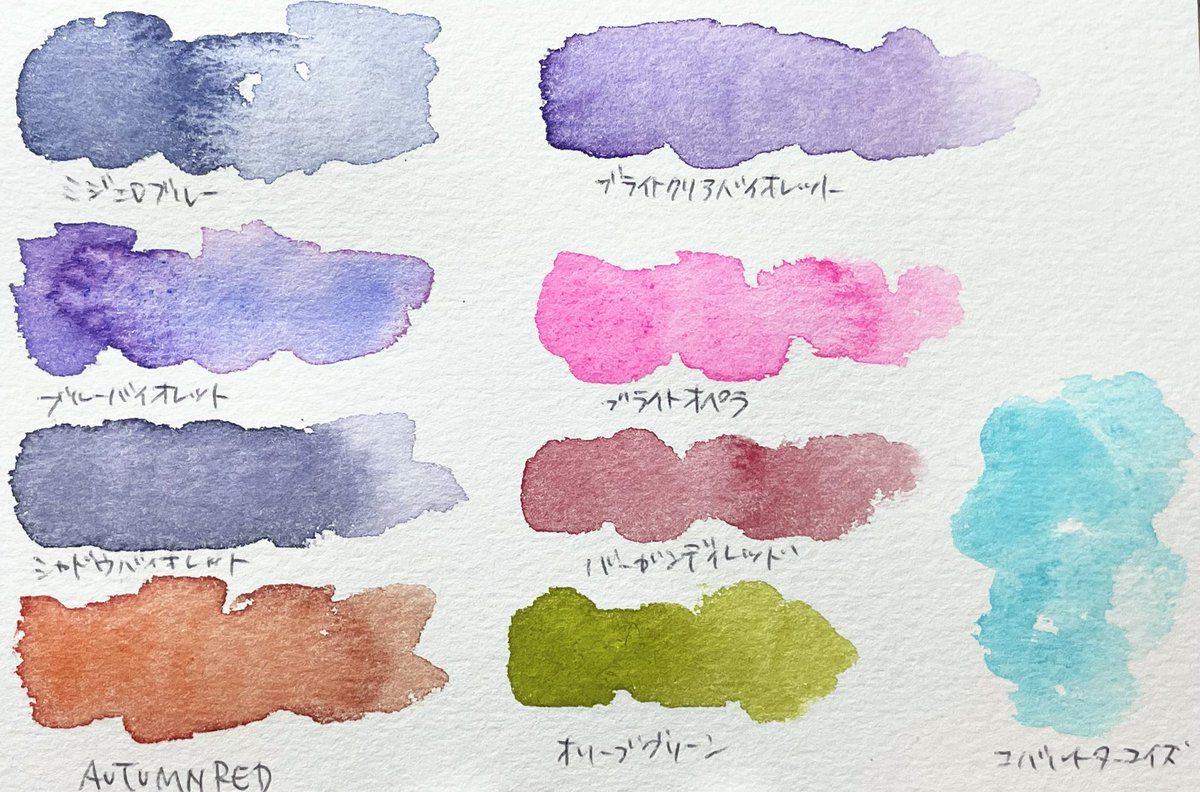 ミジェロブルー
ブライトクリアバイオレット
ブルーバイオレット
ブライトオペラ
シャドウバイオレット
バーガンディレッド
AUTUMN RED
オリーブグリーン
コバルトターコイズ